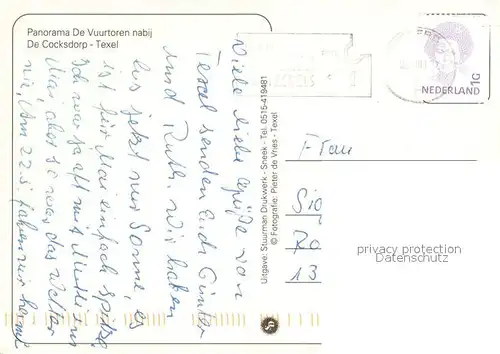 Panorama De Vuurtoren nabij
De Cocksdorp - Texel
Viele liebe Grüße von
Texel senden Euch Günter
und Ruth. Wir haben
bis jetzt nur Sonne, es
ist für Mai einfach spitze
Ich war oft mit im
Mai, aber so war das Wetter
nie. Am 22.5. fahren wir heim
Uitgave: Stuurman Drukwerk - Sneek - Tel. 0515-419481
© Fotografie: Pieter de Vries - Texel
1G
NEDERLAND
Frau
privacy protection
Datenschutz
13